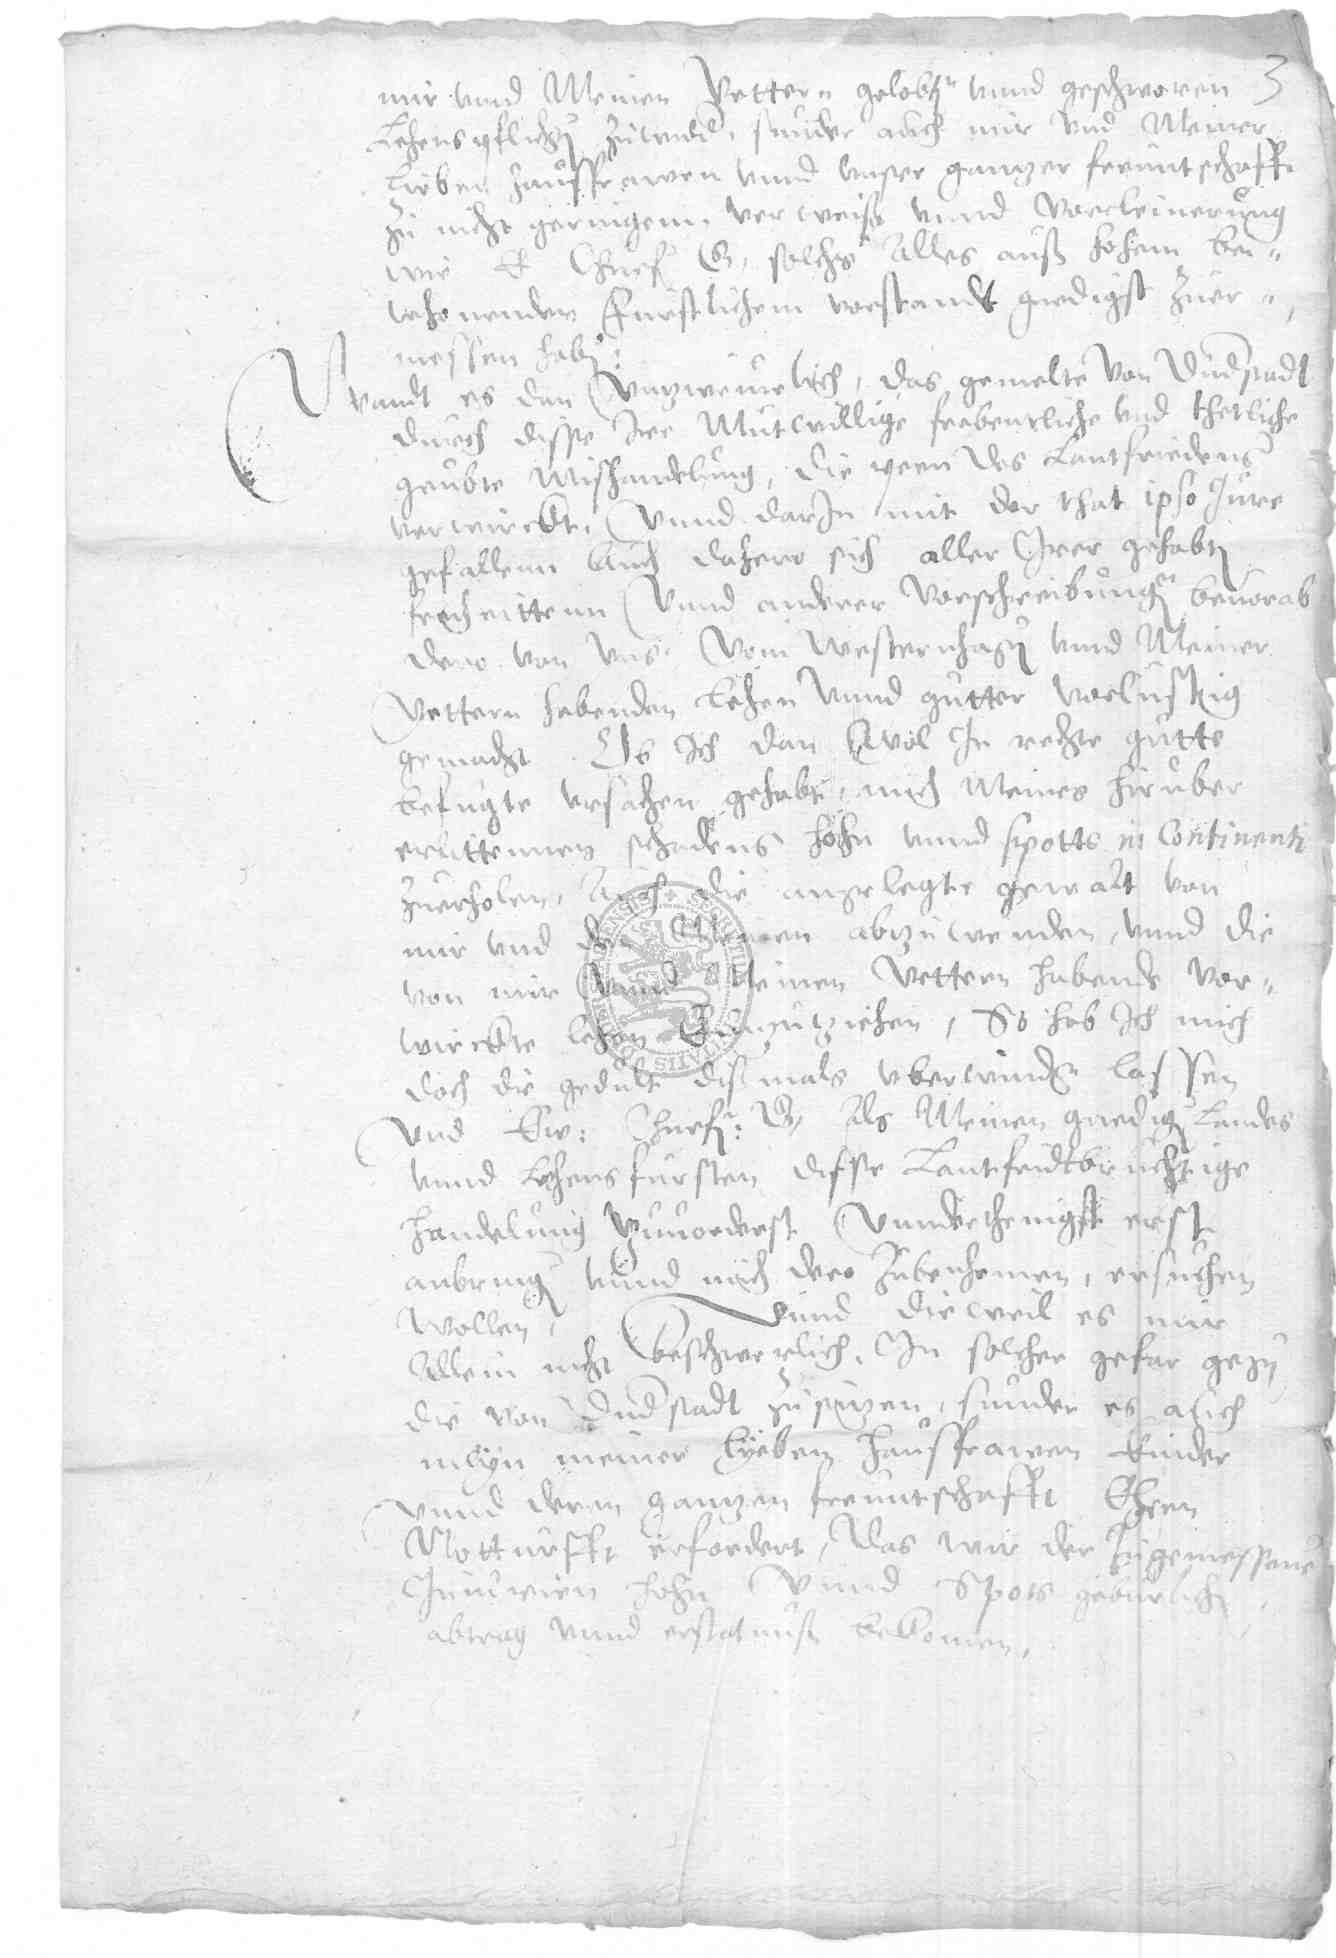 3
mir vnnd Meinen Vettern gelobtenn vnnd geschworen
Lehens pflichten zuwidder, sunder auch mir vnd Meiner
lieben Hausfrawen vnnd vnser gantzer freuntschafft
zu nicht geringem verweiß vnnd vorcleinerung
wie E Churf G. solchs Alles auß hohem bei„
whonender Fürstlichem vorstandt gnedigst zuer„
messen habenn
Wandt es dan Vnzweiuelich, das gemelte von Duderstadt
durch disse Ire Mutwillige freuentliche vnd thetliche
geubte Mißhandelung, die peen des Lantfriedens
verwirckt, Vnnd darIn mit der that ipso Jure
gefallenn Auch dahero sich aller Irer gehabten
freiheittenn Vnnd anderer Vorschreibungen beuorab
dero von vns Vom Westernhagen vnnd Meiner
Vettern habenden Lehen Vnnd gutter vorlustig
gemacht Ob Ich dan Wol In rechte gutte
befugte vrsachen gehabt, mich Meines hiruber
erlittennen schadens hohn vnnd spotts in Continenti
zuerholen, Auch die angelegte gewalt von
mir vnd den Meinen abzuwenden, vnnd die
von mir Vnnd Meinen Vettern habende vor„
wirckte lehen Einzutziehen, So hab Ich mich
doch die gedult dißmals vberwinden lassen
Vnd Ew: Churf: G. Als Meinen gnedigen Landes
vnnd Lehensfursten disse Lantfridtbruchtige
handelung Zuuorderst Vnnderthenigst erst
anbringen vnnd mich dero zubenhemen, ersuchen
Wollen, Vnnd dieweil es mir
Allein nicht beschwerlich, In solcher gefar gegen
die von Duderstadt zusitzen, sunder es auch
mein meiner lyeben hausfrawen kinder
vnnd deren gantzen freuntschafft Ehren
Notturfft erfordert, Das wir der zugemessenen
Iniurien hohn Vnnd Spots geburlichen
abtrag vnnd erstatnuß bekomen.